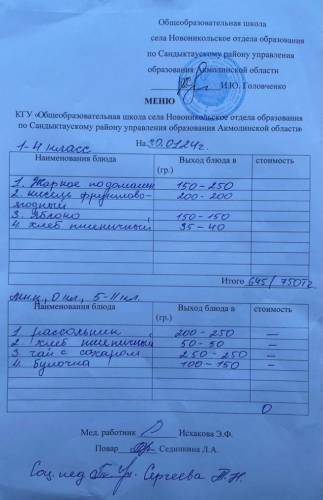 Общеобразовательная школа
села Новоникольское отдела образования
по Сандыктаускому району управления
образования Акмолинской области
И.Ю. Головченко
МЕНЮ
КГУ «Общеобразовательная школа села Новоникольское отдела образования
по Сандыктаускому району управления образования Акмолинской области»
1-4 класс На 30.01.24г.
Наименования блюда Выход блюда в (гр.) стоимость
1. Жаркое по домашн 150-250
2. кисель фруктово- 200-200
ягодный
3. Яблоко 150-150
4. хлеб пшеничный 35-40
Итого 645/750тг
0 кл, 5-11 кл.
Наименования блюда Выход блюда в (гр.) стоимость
1. рассольник 200-250 —
2. хлеб пшеничный 50-50 —
3. чай с сахаром 250-250 —
4. булочка 100-150 —
0
Мед. работник Исхакова Э.Ф.
Повар Сединкина Л.А.
Соц.пед Сергеева Т.Н.